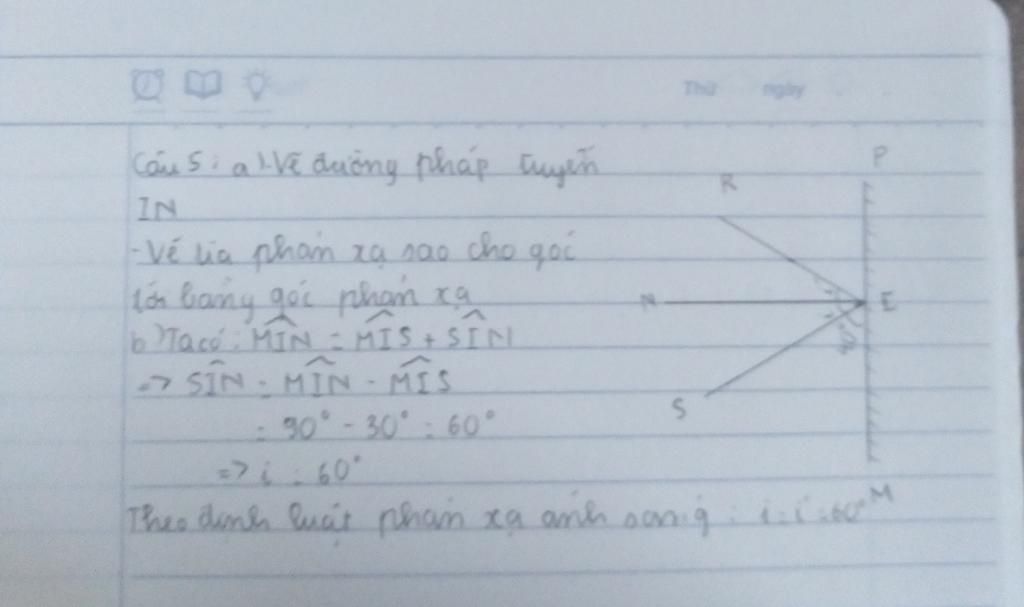 Thứ ngày
Câu 5: a) Vẽ đường pháp tuyến
IN
- Vẽ tia phản xạ sao cho góc
tới bằng góc phản xạ
b) Ta có: MIN = MIS + SIN
=> SIN = MIN - MIS
= 90° - 30° = 60°
=> i = 60°
Theo định luật phản xạ ánh sáng: i = i' = 60°
P
R
N
E
S
M